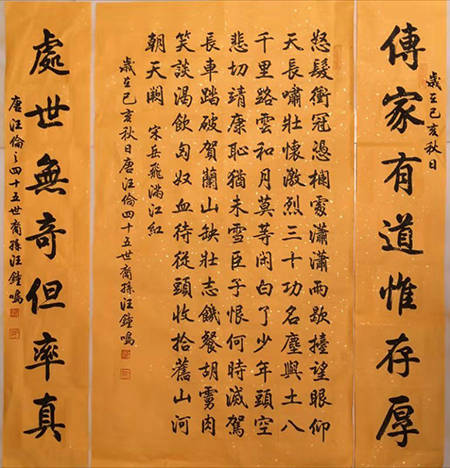 歲在己亥秋日
傳家有道惟存厚
怒髮衝冠憑欄處瀟瀟雨歇擡望眼仰
天長嘯壯懷激烈三十功名塵與土八
千里路雲和月莫等閒白了少年頭空
悲切靖康恥猶未雪臣子恨何時滅駕
長車踏破賀蘭山缺壯志饑餐胡虜肉
笑談渴飲匈奴血待從頭收拾舊山河
朝天闕 宋岳飛滿江紅
歲在己亥秋日唐汪倫四十五世裔孫汪鐘鳴
處世無奇但率真
唐汪倫之四十五世裔孫汪鐘鳴